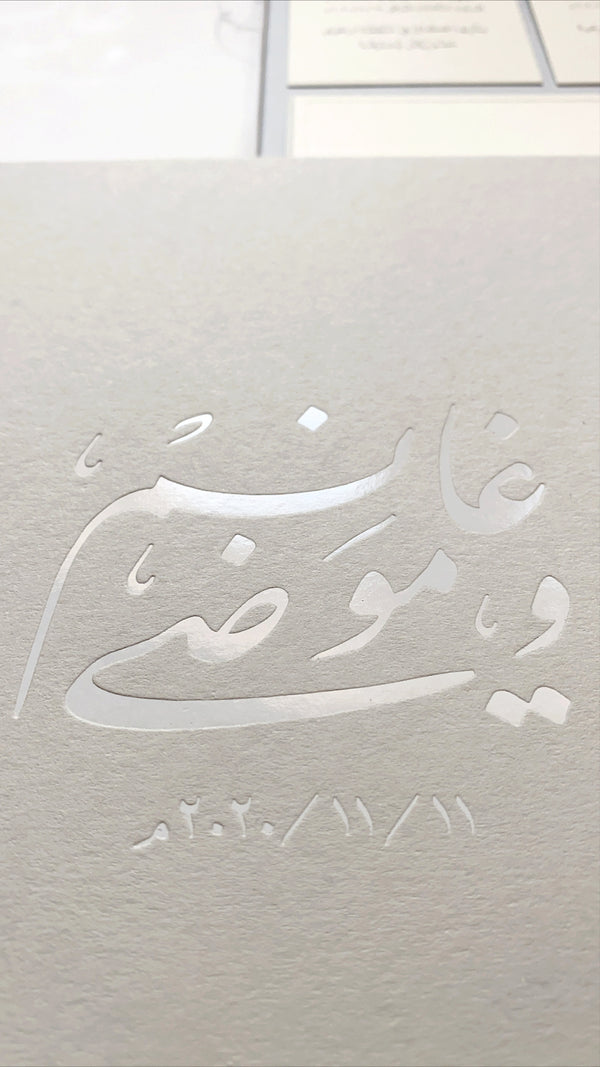 غانم
و موضي
١١/١١/٢٠٢٠م